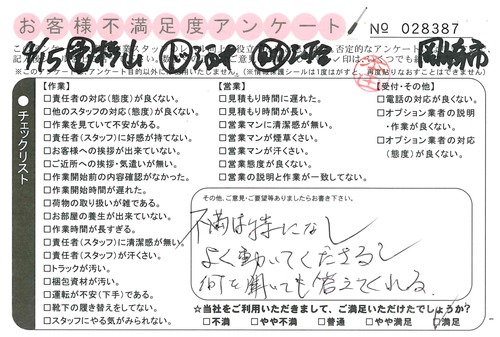 お客様不満足度アンケート
No 028387
岡崎市
チェックリスト
【作業】
□責任者の対応(態度)が良くない。
□他のスタッフの対応(態度)が良くない。
□作業を見ていて不安がある。
□責任者(スタッフ)に好感が持てない。
□お客様への挨拶が出来ていない。
□ご近所への挨拶・気遣いが無い。
□作業開始前の内容確認がなかった。
□作業開始時間が遅れた。
□荷物の取り扱いが雑である。
□お部屋の養生が出来ていない。
□作業時間が長すぎる。
□責任者(スタッフ)に清潔感が無い。
□責任者(スタッフ)が汗くさい。
□トラックが汚い。
□梱包資材が汚い。
□運転が不安(下手)である。
□靴下の履き替えをしてない。
□スタッフにやる気がみられない。
【営業】
□見積もり時間に遅れた。
□見積もり時間が長い。
□営業マンに清潔感が無い。
□営業マンが煙草くさい。
□営業マンが汗くさい。
□営業態度が良くない。
□営業の説明と作業が一致してない。
【受付・その他】
□電話の対応が良くない。
□オプション業者の説明
・作業が良くない。
□オプション業者の対応
(態度)が良くない。
その他、ご意見・ご要望等ありましたらお書き下さい。
不満は特になし
よく動いてくださるし
何を聞いても答えてくれる。
☆当社をご利用いただきまして、ご満足いただけたでしょうか?
□不満 □やや不満 □普通 □やや満足 □満足